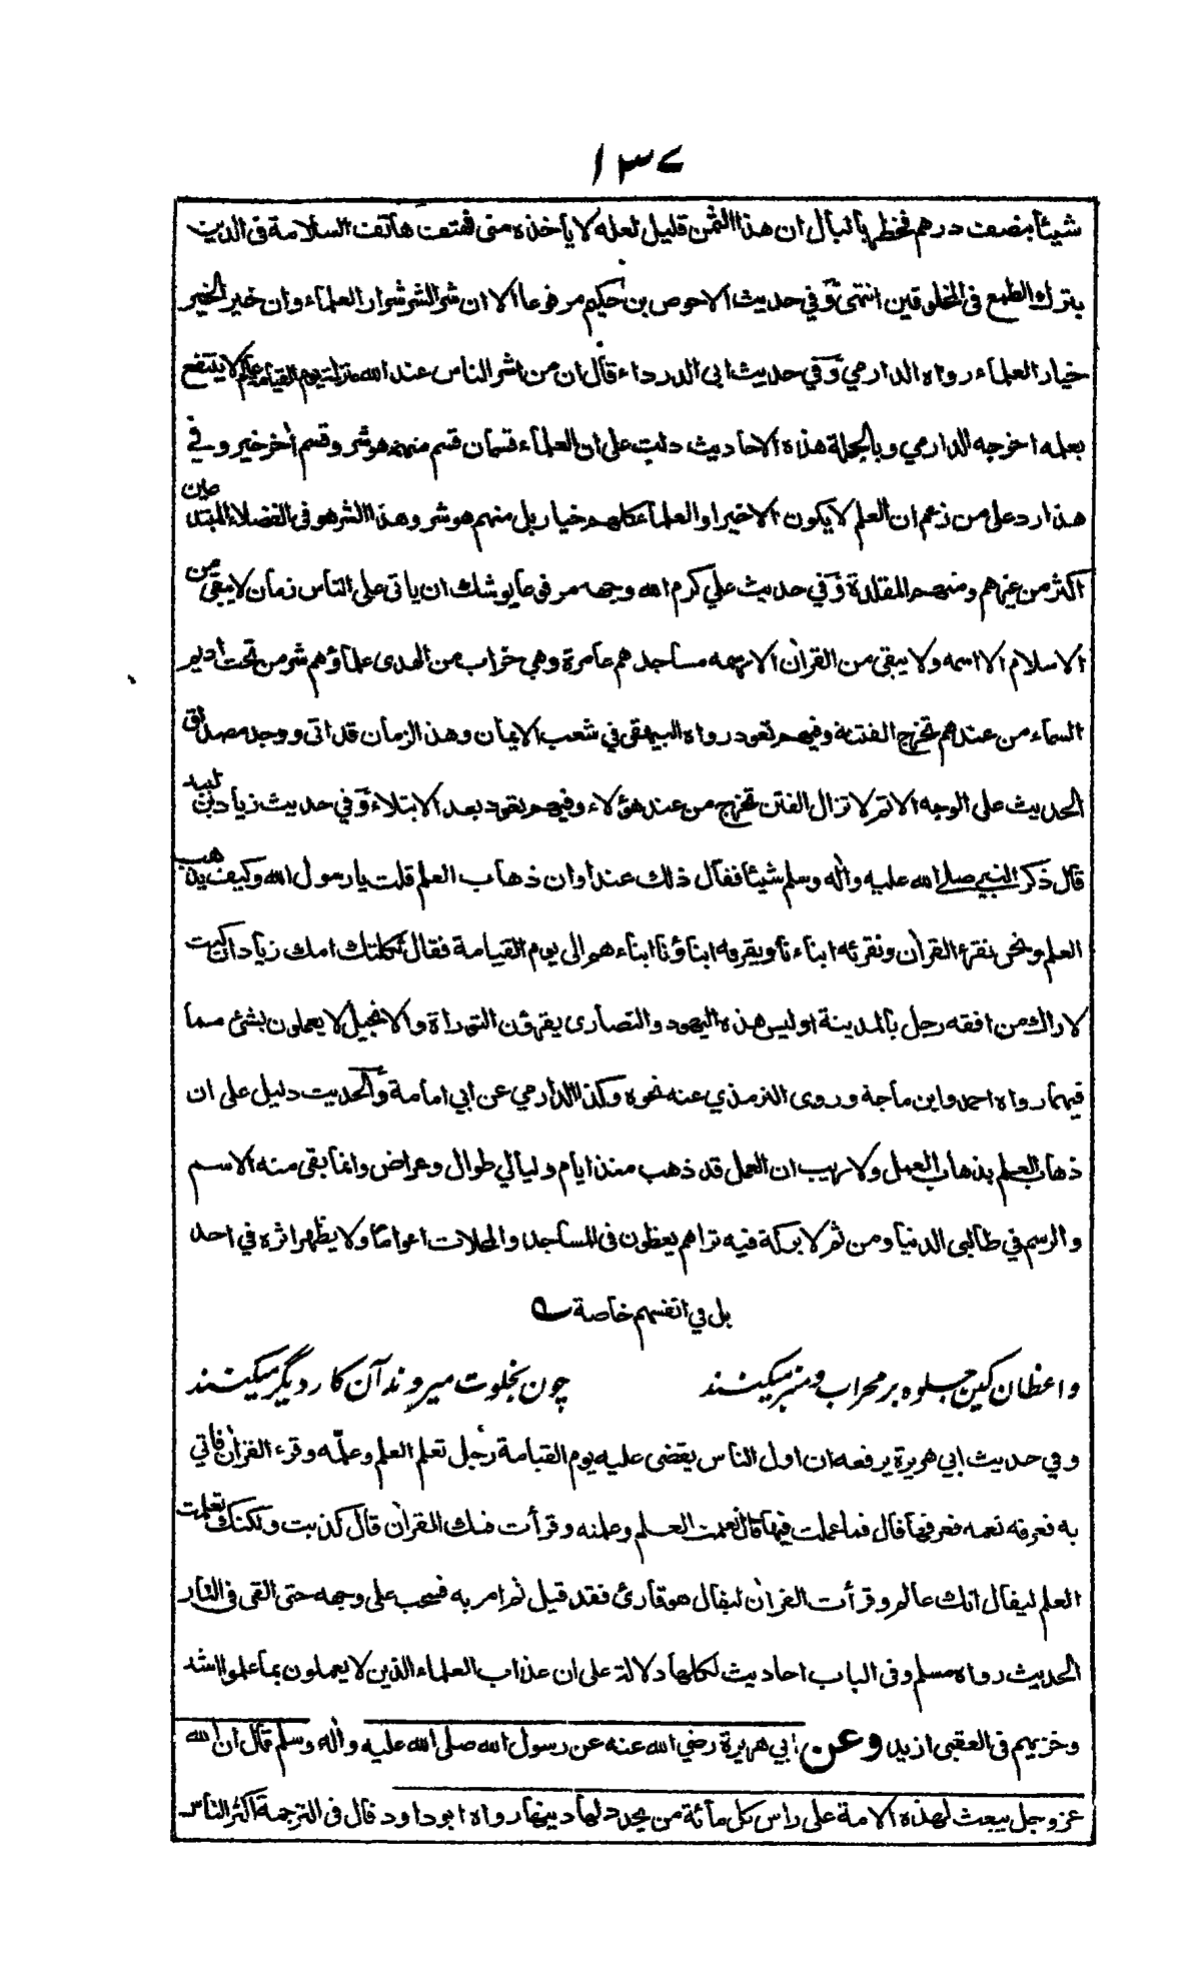 ١٣٧
شيئا بنصف درهم فخطر بالبال ان هذا الثمن قليل لعله لا يأخذه منى فهتف هاتف السلامة فى الدين
بترك الطمع فى المخلوقين انتهى وفي حديث الاحوص بن حكيم مرفوعا الا ان شر الشر شرار العلماء وان خير الخير
خيار العلماء رواه الدارمي وفي حديث ابى الدرداء قال ان من اشر الناس عند الله منزلة يوم القيامة عالم لا ينتفع
بعلمه اخرجه الدارمي وبالجملة هذه الاحاديث دلت على ان العلماء قسمان قسم منهم هو شر وقسم أخر خير وفي
هذا رد على من زعم ان العلم لا يكون الا خيرا والعلماء كلهم خيار بل منهم هو شر وهذا الشر هو فى الفضلاء المبتدعين
اكثر من غيرهم ومنهم المقلدة وفي حديث علي كرم الله وجهه مرفوعا يوشك ان ياتى على الناس زمان لا يبقى من
الاسلام الا اسمه ولا يبقى من القرأن الا رسمه مساجدهم عامرة وهي خراب من الهدى علماؤهم شر من تحت اديم
السماء من عندهم تخرج الفتنة وفيهم تعود رواه البيهقى في شعب الايمان وهذا الزمان قد اتى ووجد مصداق
الحديث على الوجه الاتم لا تزال الفتن تخرج من عند هؤلاء وفيهم تعود بعد الابتلاء وفي حديث زياد بن لبيد
قال ذكر النبي صلى الله عليه وأله وسلم شيئا فقال ذلك عند اوان ذهاب العلم قلت يا رسول الله وكيف يذهب
العلم ونحن نقرء القرأن ونقرئه ابناءنا ويقرءه ابناؤنا ابناءهم الى يوم القيامة فقال ثكلتك امك زياد ان كنت
لاراك من افقه رجل بالمدينة اوليس هذه اليهود والنصارى يقرءون التوراة والانجيل لا يعملون بشئ مما
فيهما رواه احمد وابن ماجة وروى الترمذي عنه نحوه وكذا الدارمي عن ابي امامة والحديث دليل على ان
ذهاب العلم بذهاب العمل ولا ريب ان العمل قد ذهب منذ ايام وليالي طوال وعراض وانما بقى منه الاسم
والرسم في طالبى الدنيا ومن ثم لا بركة فيه تراهم يعظون فى المساجد والمحلات اعواما ولا يظهر اثره في احد
بل في انفسهم خاصة
واعظان کین جلوه بر محراب ومنبر میکنند چون بخلوت میروند آن کار دیگر میکنند
وفي حديث ابي هريرة يرفعه ان اول الناس يقضى عليه يوم القيامة رجل تعلم العلم وعلّمه وقرء القرأن فاتي
به فعرفه نعمه فعرفها قال فما عملت فيها قال تعلمت العلم وعلمته وقرأت فيك القرأن قال كذبت ولكنك تعلمت
العلم ليقال انك عالم وقرأت القرأن ليقال هو قارئ فقد قيل ثم امر به فسحب على وجهه حتى القى فى النار
الحديث رواه مسلم وفى الباب احاديث لكلها دلالة على ان عذاب العلماء الذين لا يعملون بما علموا اشد
وخزيهم فى العقبى ازيد وعن ابي هريرة رضي الله عنه عن رسول الله صلى الله عليه وأله وسلم قال ان الله
عز وجل يبعث لهذه الامة على راس كل مأئة من يجدد لها دينها رواه ابو داود قال فى الترجمة اكثر الناس